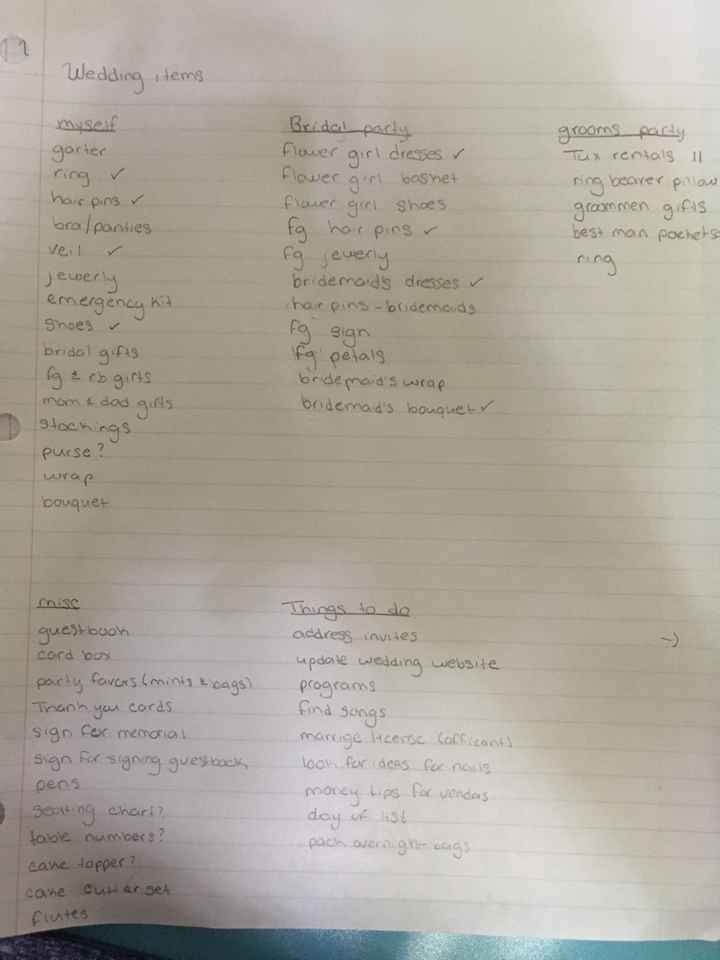 Wedding items
myself
garter
ring ✓
hair pins ✓
bra/panties
veil ✓
jewerly
emergency kit
shoes ✓
bridal gifts
fg & rb gifts
mom & dad gifts
stockings
purse?
wrap
bouquet
Bridal party
flower girl dresses ✓
flower girl basket
flower girl shoes
fg hair pins ✓
fg jewerly
bridemaid's dresses ✓
hair pins - bridemaids
fg sign
fg petals
bridemaid's wrap
bridemaid's bouquet ✓
grooms party
Tux rentals 11
ring bearer pillow
groommen gifts
best man pockets
ring
misc
guestbook
card box
party favors (mints & bags)
Thank you cards
sign for memorial
sign for signing guestbook
pens
seating chart?
table numbers?
cake topper?
cake cutter set
flutes
Things to do
address invites
update wedding website
programs
find songs
marrige license (officant)
look for ideas for nails
money tips for vendas
day of list
pack overnight bags
→